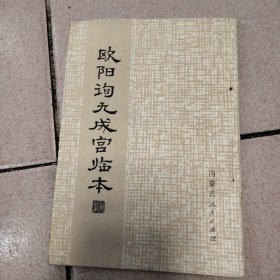 欧阳询九成宫临本
内蒙古人民出版社